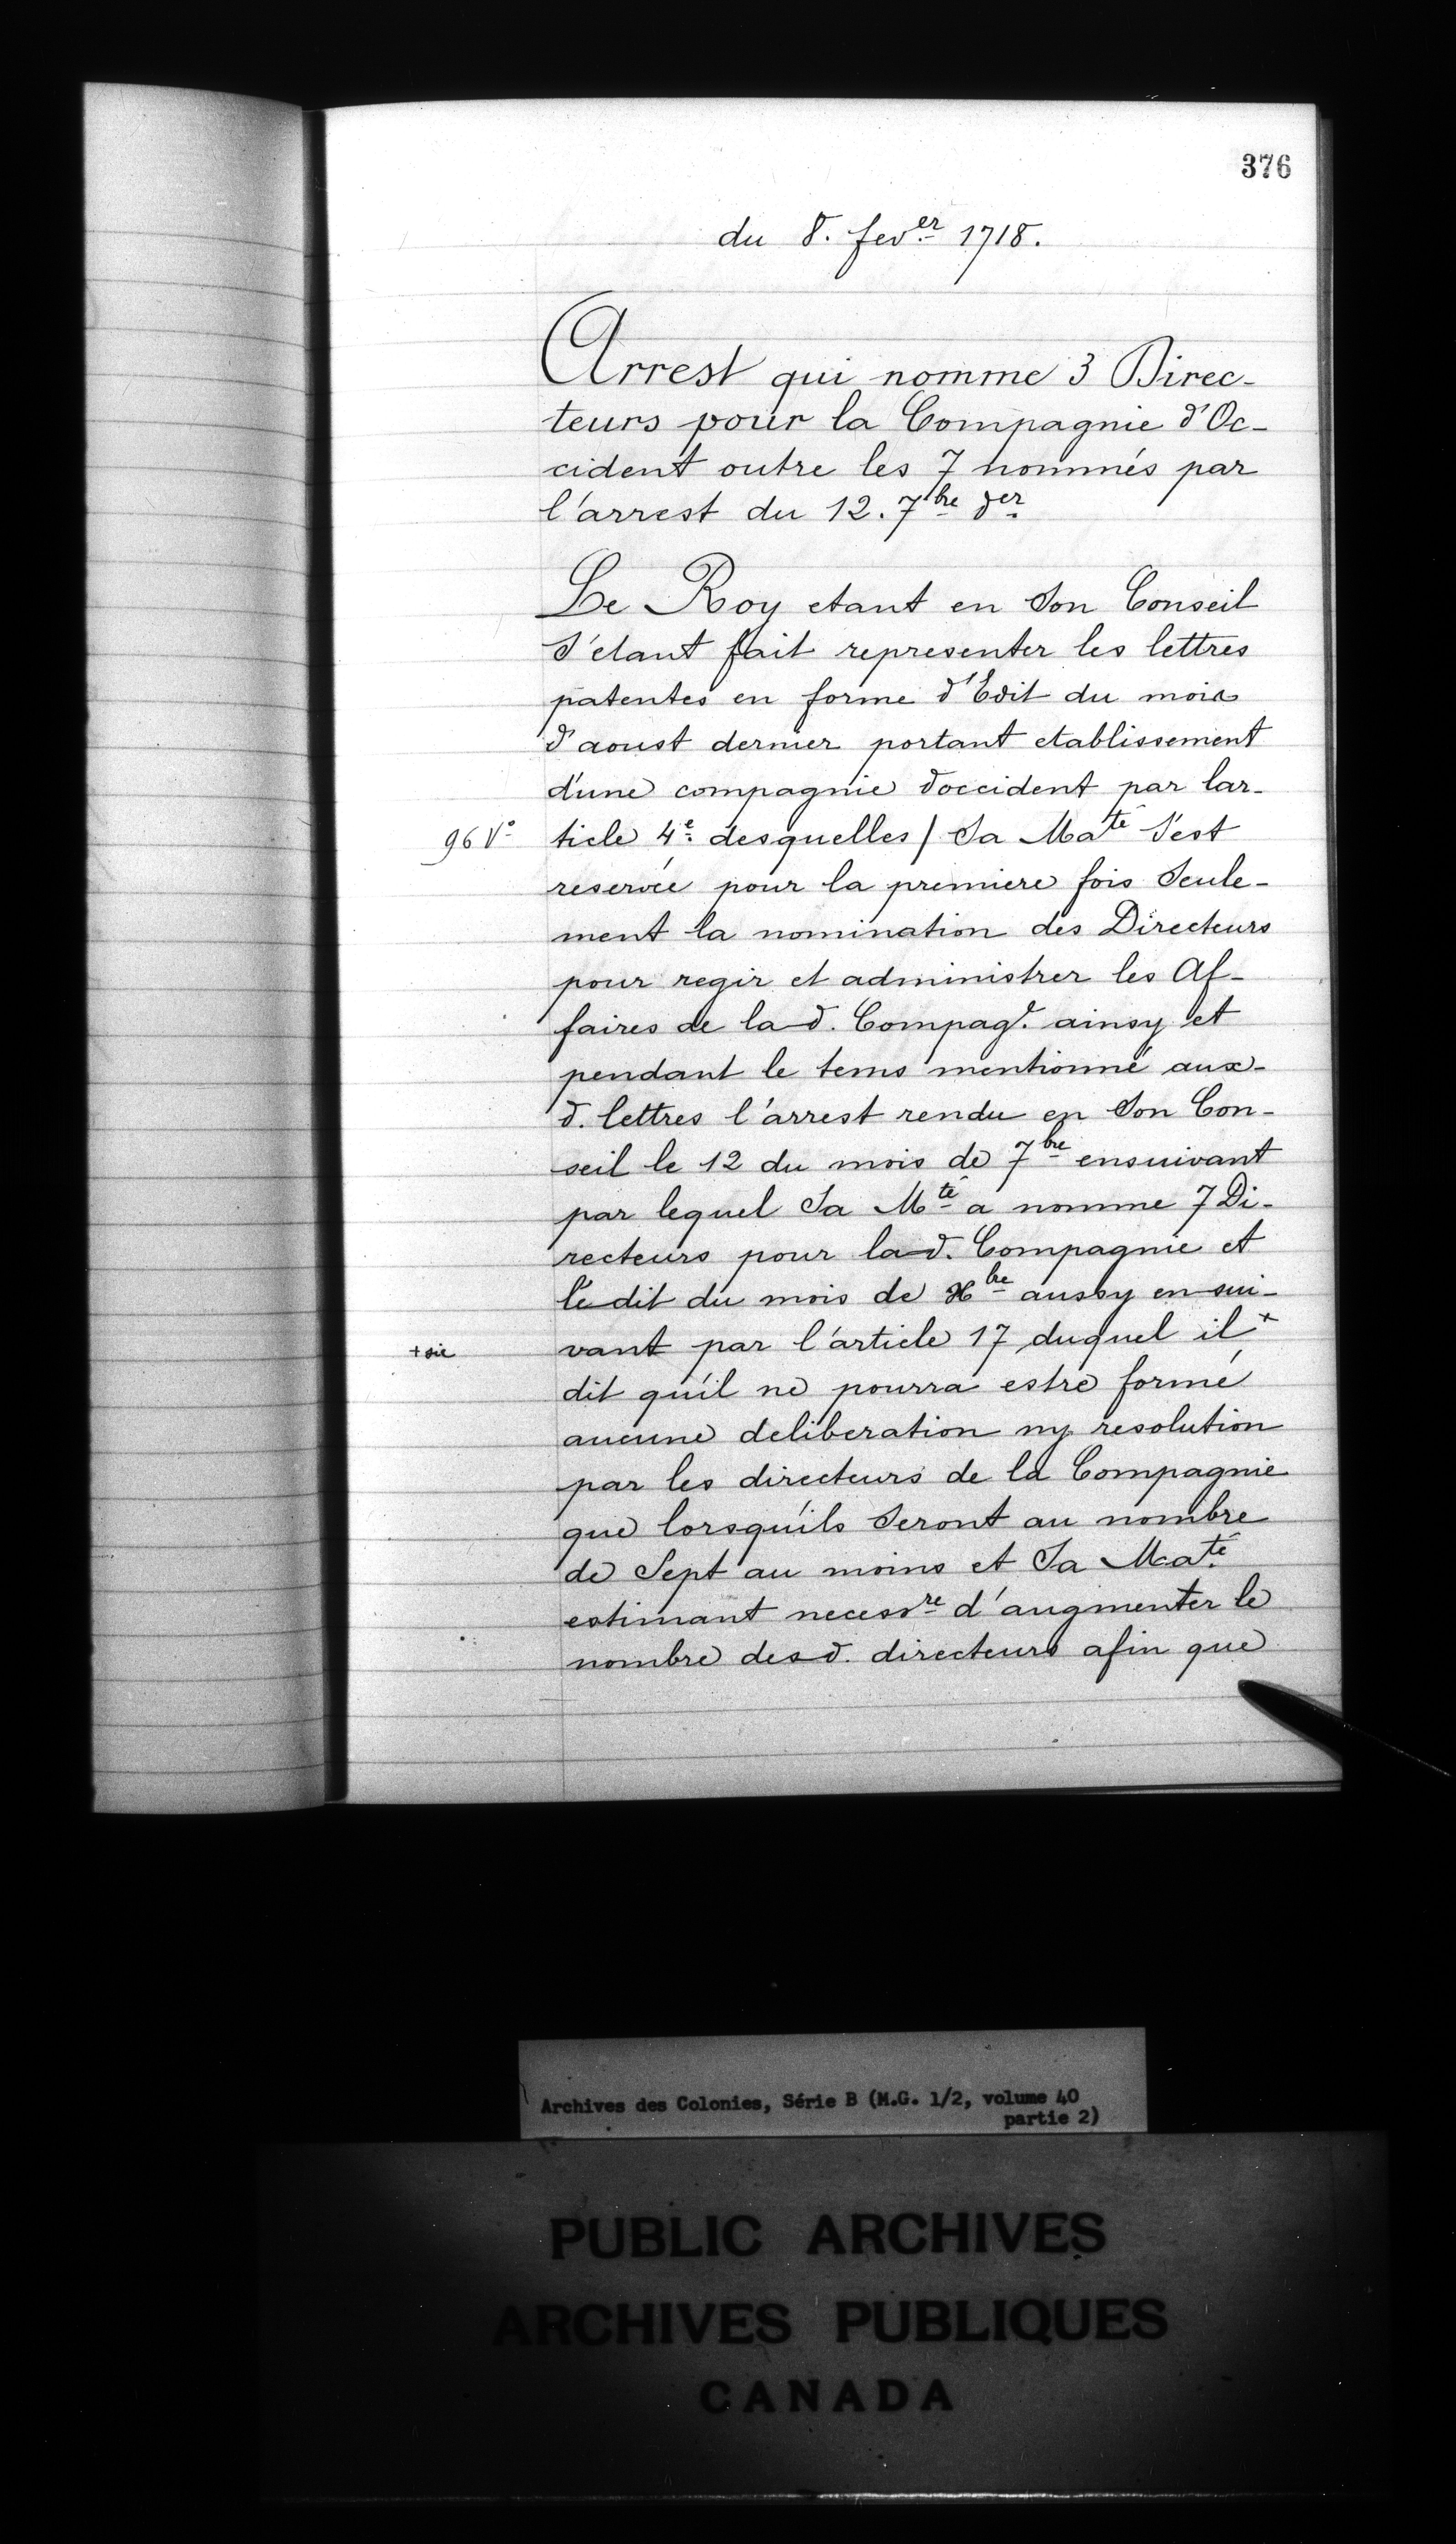 376
du 8. fev.er 1718.
Arrest qui nomme 3 Direc-
teurs pour la Compagnie d'Oc-
cident outre les 7 nommés par
l'arrest du 12. 7bre der
Le Roy etant en Son Conseil
S'etant fait representer les lettres
patentes en forme d'Edit du mois
d'aoust dernier portant etablissement
d'une compagnie doccident par lar-
96 Vo ticle 4e. desquelles / Sa Maté S'est
reservée pour la premiere fois Seule-
ment la nomination des Directeurs
pour regir et administrer les Af-
faires de la d. Compage. ainsy et
pendant le tems mentionné aux-
d. lettres l'arrest rendu en Son Con-
seil le 12 du mois de 7bre ensuivant
par lequel Sa Mté a nomme 7 Di-
recteurs pour la d. Compagnie et
l'edit du mois de Xbre aussy ensui-
+ sic vant par l'article 17 duquel il +
dit qu'il ne pourra estre formé
aucune deliberation ny resolution
par les directeurs de la Compagnie
que lorsqu'ils Seront au nombre
de Sept au moins et Sa Maté
estimant necessre d'augmenter le
nombre des d. directeurs afin que
Archives des Colonies, Série B (M.G. 1/2, volume 40
partie 2)
PUBLIC ARCHIVES
ARCHIVES PUBLIQUES
CANADA